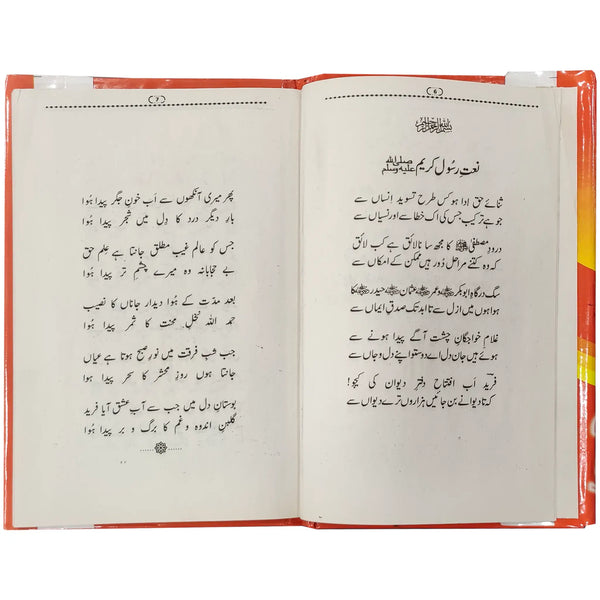 (6)
بسم اللہ الرحمٰن الرحیم
نعتِ رسُولِ کریم صلی اللہ علیہ وسلم
ثنائے حق ادا ہو کس طرح تسوید انساں سے
جو ہے ترکیب جس کی اک خطا سے اور نسیاں سے
درودِ مصطفیٰ ﷺ کا مجھ سا نالائق ہے کب لائق
کہ وہ کتنے مراحل دُور ہیں ممکن کے امکاں سے
سگ درگاہِ ابوبکر و عمر عثمان حیدر کا
ہوا ہوں میں ازل سے تا ابد تک صدقِ ایماں سے
غلام خواجگانِ چشت آگے پیدا ہونے سے
ہوئے ہیں جان دل اے دوستو اپنے دل و جاں سے
فرید اَب افتتاحِ دفترِ دیوان کی کیجو!
کہ تا دیوانے بن جائیں ہزاروں ترے دیواں سے
(7)
پھر میری آنکھوں سے اَب خونِ جگر پیدا ہُوا
بارِ دیگر درد کا دِل میں شجر پیدا ہُوا
جس کو عالم غیب مطلق جانتا ہے عِلم حق
بے حجابانہ وہ میرے چشمِ تر پیدا ہوا
بعد مدّت کے ہُوا دیدار جاناں کا نصیب
حمد اللہ نخلِ محنت کا ثمر پیدا ہُوا
جب شب فرقت میں نورِ صبح ہوتا ہے عیاں
جانتا ہوں روزِ محشر کا سحر پیدا ہوا
بوستانِ دِل میں جب سے آب عشق آیا فرید
گلبنِ اندوہ و غم کا برگ و بر پیدا ہُوا